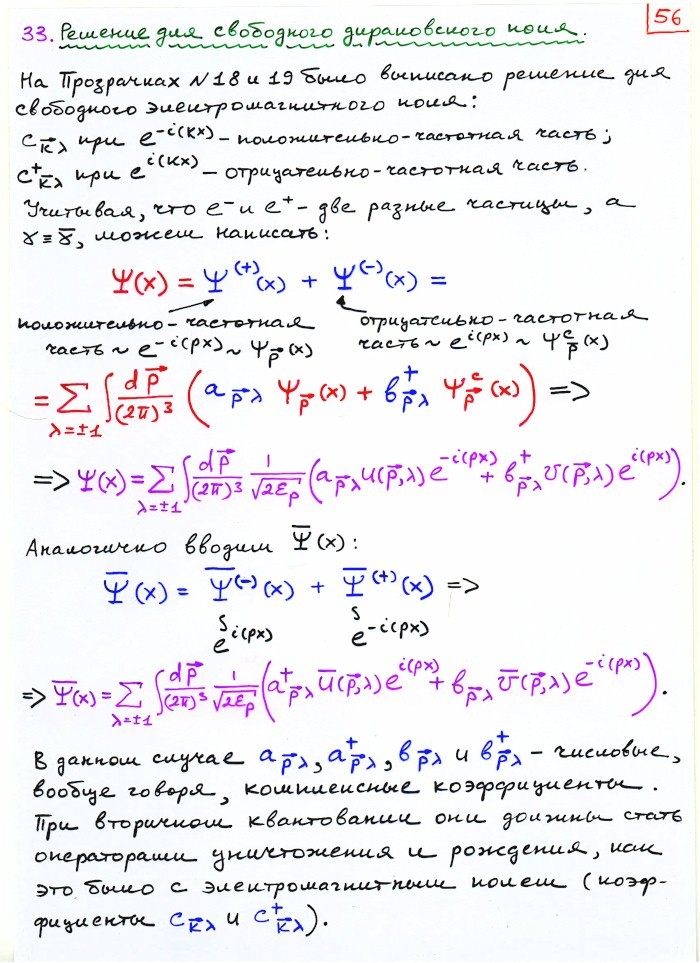 56
33. Решение для свободного дираковского поля.
На Прозрачках N 18 и 19 было выписано решение для
свободного электромагнитного поля:
c_{k⃗λ} при e^{-i(kx)} – положительно-частотная часть;
c⁺_{k⃗λ} при e^{i(kx)} – отрицательно-частотная часть.
Учитывая, что e⁻ и e⁺ – две разные частицы, а
γ ≡ γ̄, можем написать:
Ψ(x) = Ψ^{(+)}(x) + Ψ^{(-)}(x) =
положительно-частотная часть ~ e^{-i(px)} ~ ψ_{p⃗}(x)
отрицательно-частотная часть ~ e^{i(px)} ~ ψ^c_{p⃗}(x)
= Σ_{λ=±1} ∫ dp⃗/(2π)³ (a_{p⃗λ} Ψ_{p⃗}(x) + b⁺_{p⃗λ} Ψ^c_{p⃗}(x)) =>
=> Ψ(x) = Σ_{λ=±1} ∫ dp⃗/(2π)³ 1/√(2ε_p) (a_{p⃗λ} u(p⃗,λ) e^{-i(px)} + b⁺_{p⃗λ} v(p⃗,λ) e^{i(px)}).
Аналогично вводим Ψ̄(x):
Ψ̄(x) = Ψ̄^{(-)}(x) + Ψ̄^{(+)}(x) =>
~ e^{i(px)} ~ e^{-i(px)}
=> Ψ̄(x) = Σ_{λ=±1} ∫ dp⃗/(2π)³ 1/√(2ε_p) (a⁺_{p⃗λ} ū(p⃗,λ) e^{i(px)} + b_{p⃗λ} v̄(p⃗,λ) e^{-i(px)}).
В данном случае a_{p⃗λ}, a⁺_{p⃗λ}, b_{p⃗λ} и b⁺_{p⃗λ} – числовые,
вообще говоря, комплексные коэффициенты.
При вторичном квантовании они должны стать
операторами уничтожения и рождения, как
это было с электромагнитным полем (коэф-
фициенты c_{k⃗λ} и c⁺_{k⃗λ}).